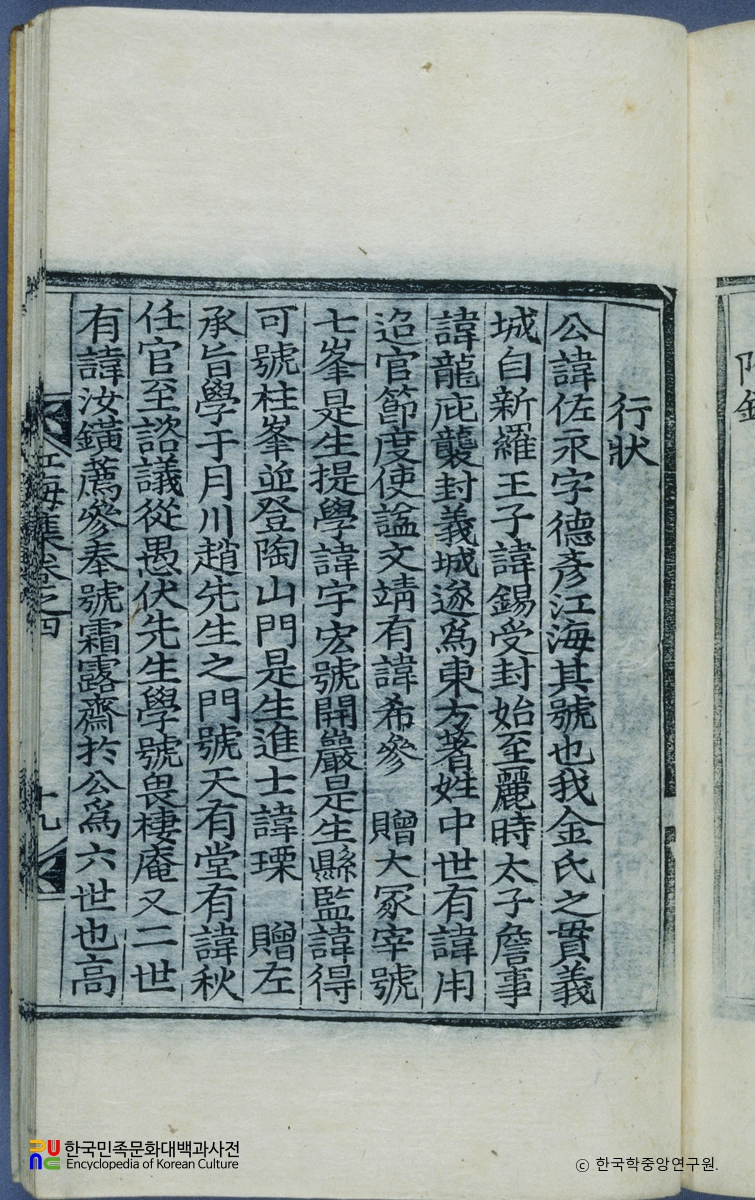 行狀
公諱佐永字德彥江海其號也我金氏之貫義
城自新羅王子諱錫受封始至麗時太子詹事
諱龍庇襲封義城遂爲東方著姓中世有諱用
迢官節度使諡文靖有諱希參 贈大冢宰號
七峯是生提學諱宇宏號開巖是生縣監諱得
可號柱峯並登陶山門是生進士諱瑮 贈左
承旨學于月川趙先生之門號天有堂有諱秋
任官至諮議從愚伏先生學號畏棲庵又二世
有諱汝鐄薦參奉號霜露齋於公爲六世也高
江海集卷之四
十九
附錄
한국민족문화대백과사전
Encyclopedia of Korean Culture
© 한국학중앙연구원.